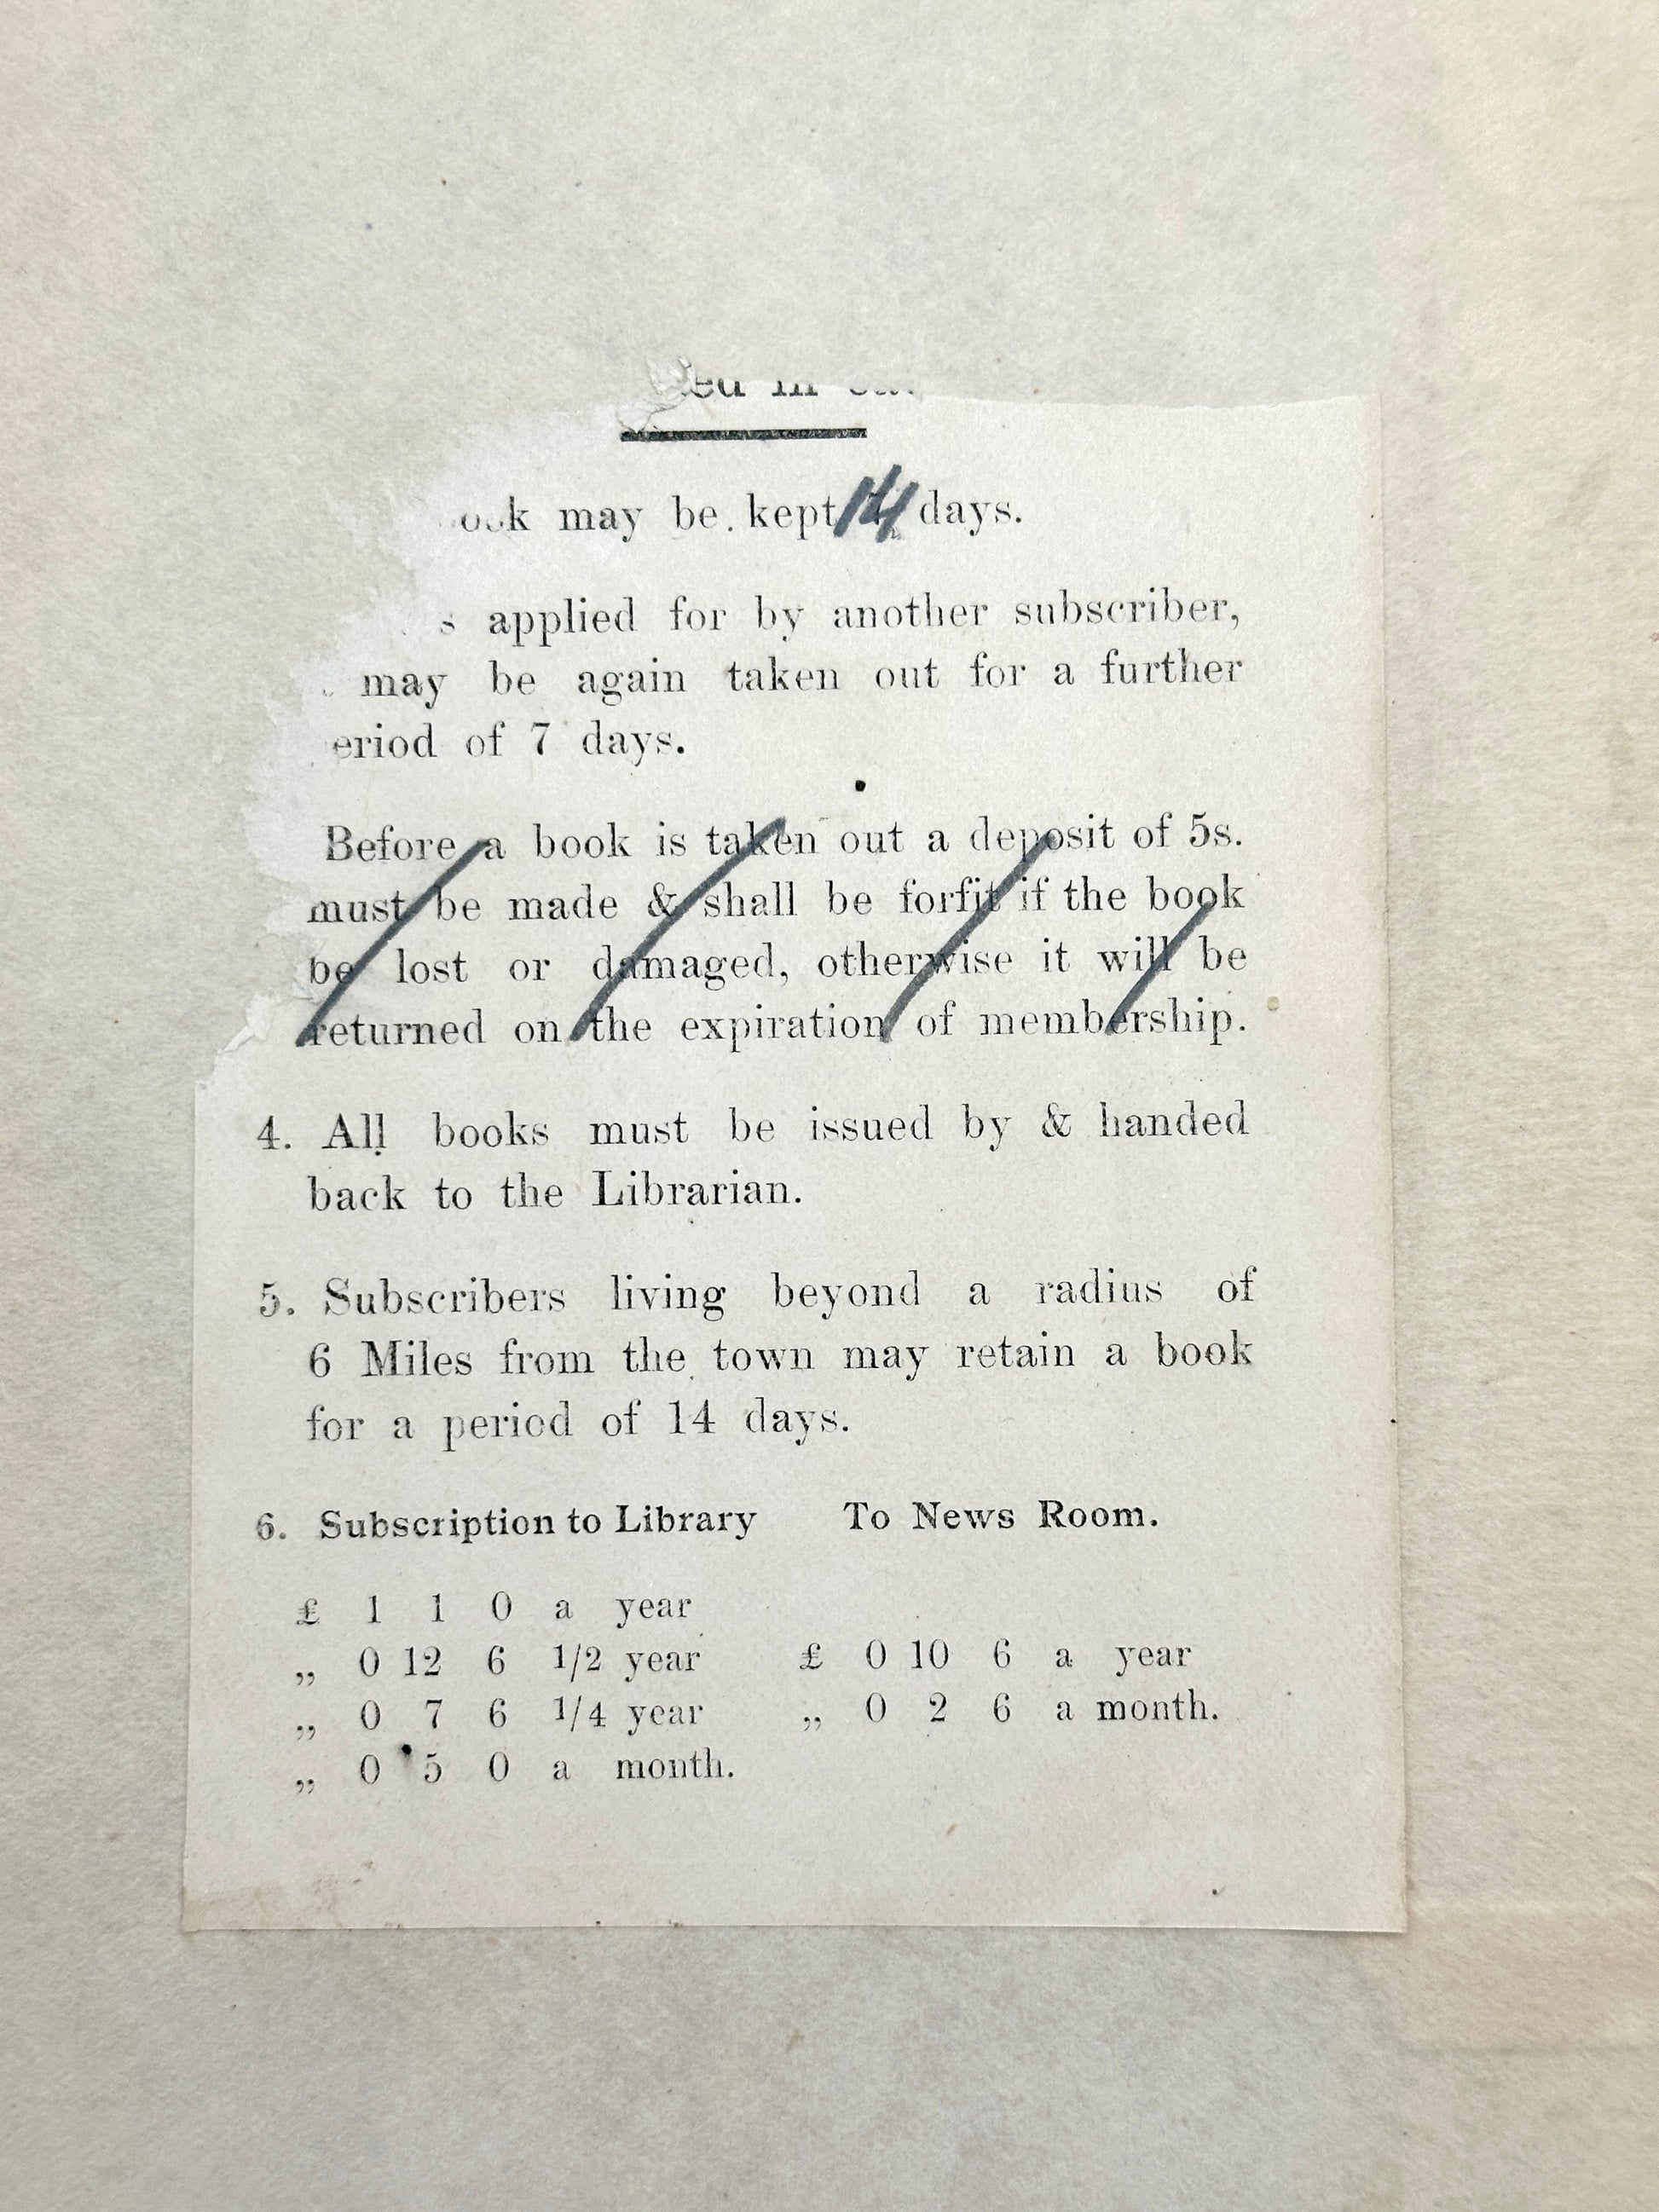 ed in
ook may be kept 14 days.
s applied for by another subscriber,
may be again taken out for a further
eriod of 7 days.
Before a book is taken out a deposit of 5s.
must be made & shall be forfit if the book
be lost or damaged, otherwise it will be
returned on the expiration of membership.
4. All books must be issued by & handed
back to the Librarian.
5. Subscribers living beyond a radius of
6 Miles from the town may retain a book
for a period of 14 days.
6. Subscription to Library To News Room.
£ 1 1 0 a year
„ 0 12 6 1/2 year £ 0 10 6 a year
„ 0 7 6 1/4 year „ 0 2 6 a month.
„ 0 5 0 a month.